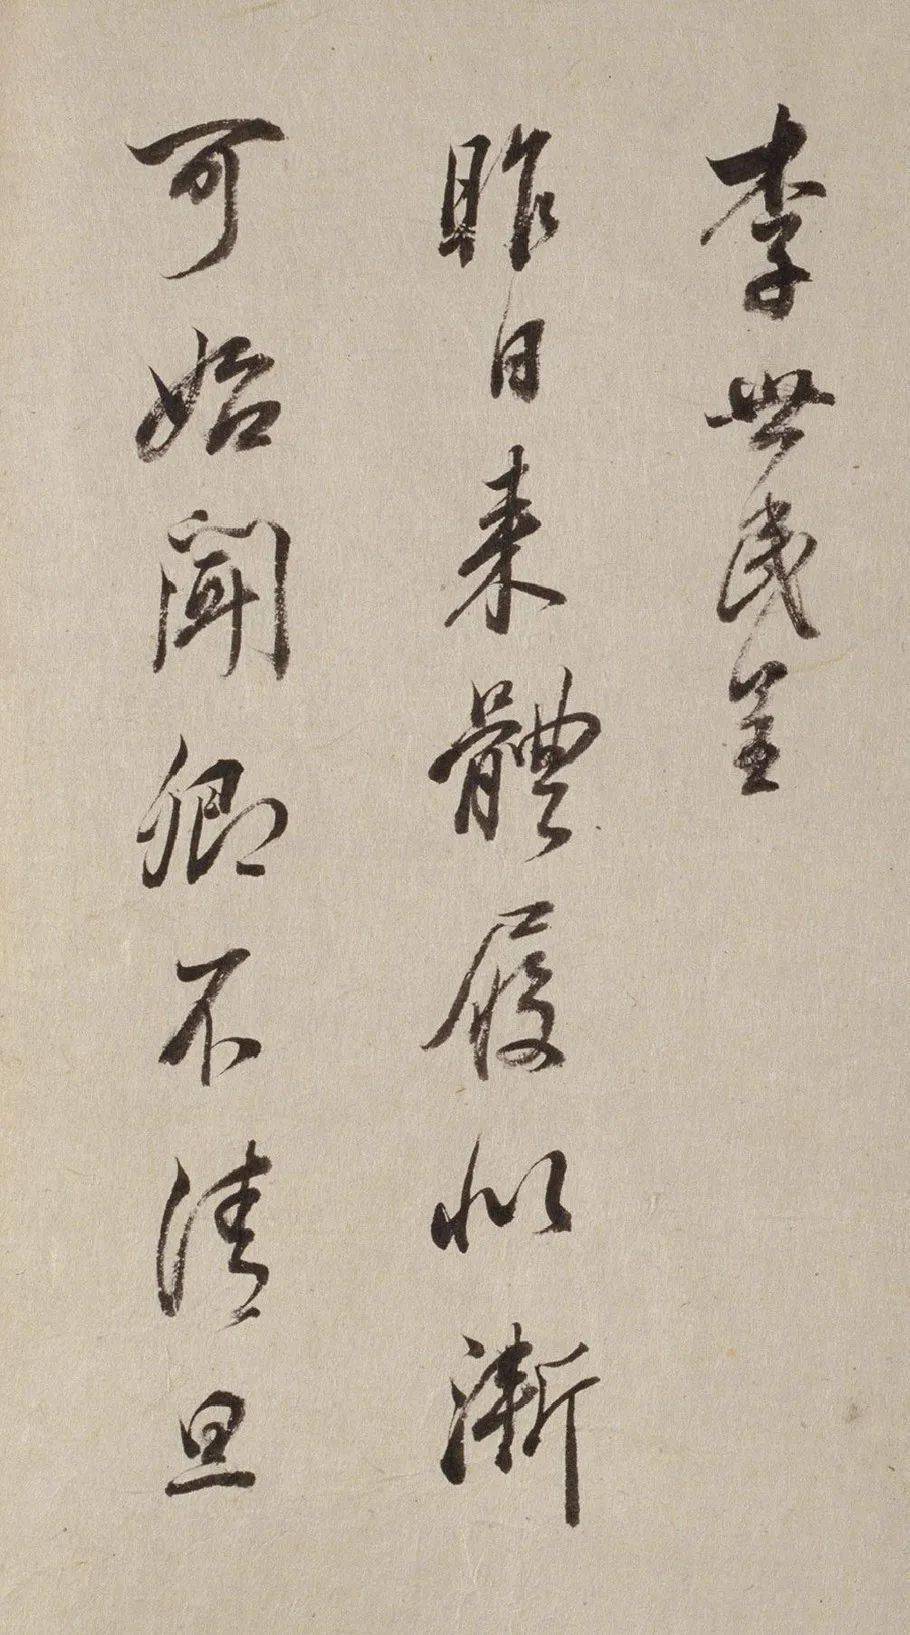 李世民呈
昨日来體履似漸
可始聞卿不清旦